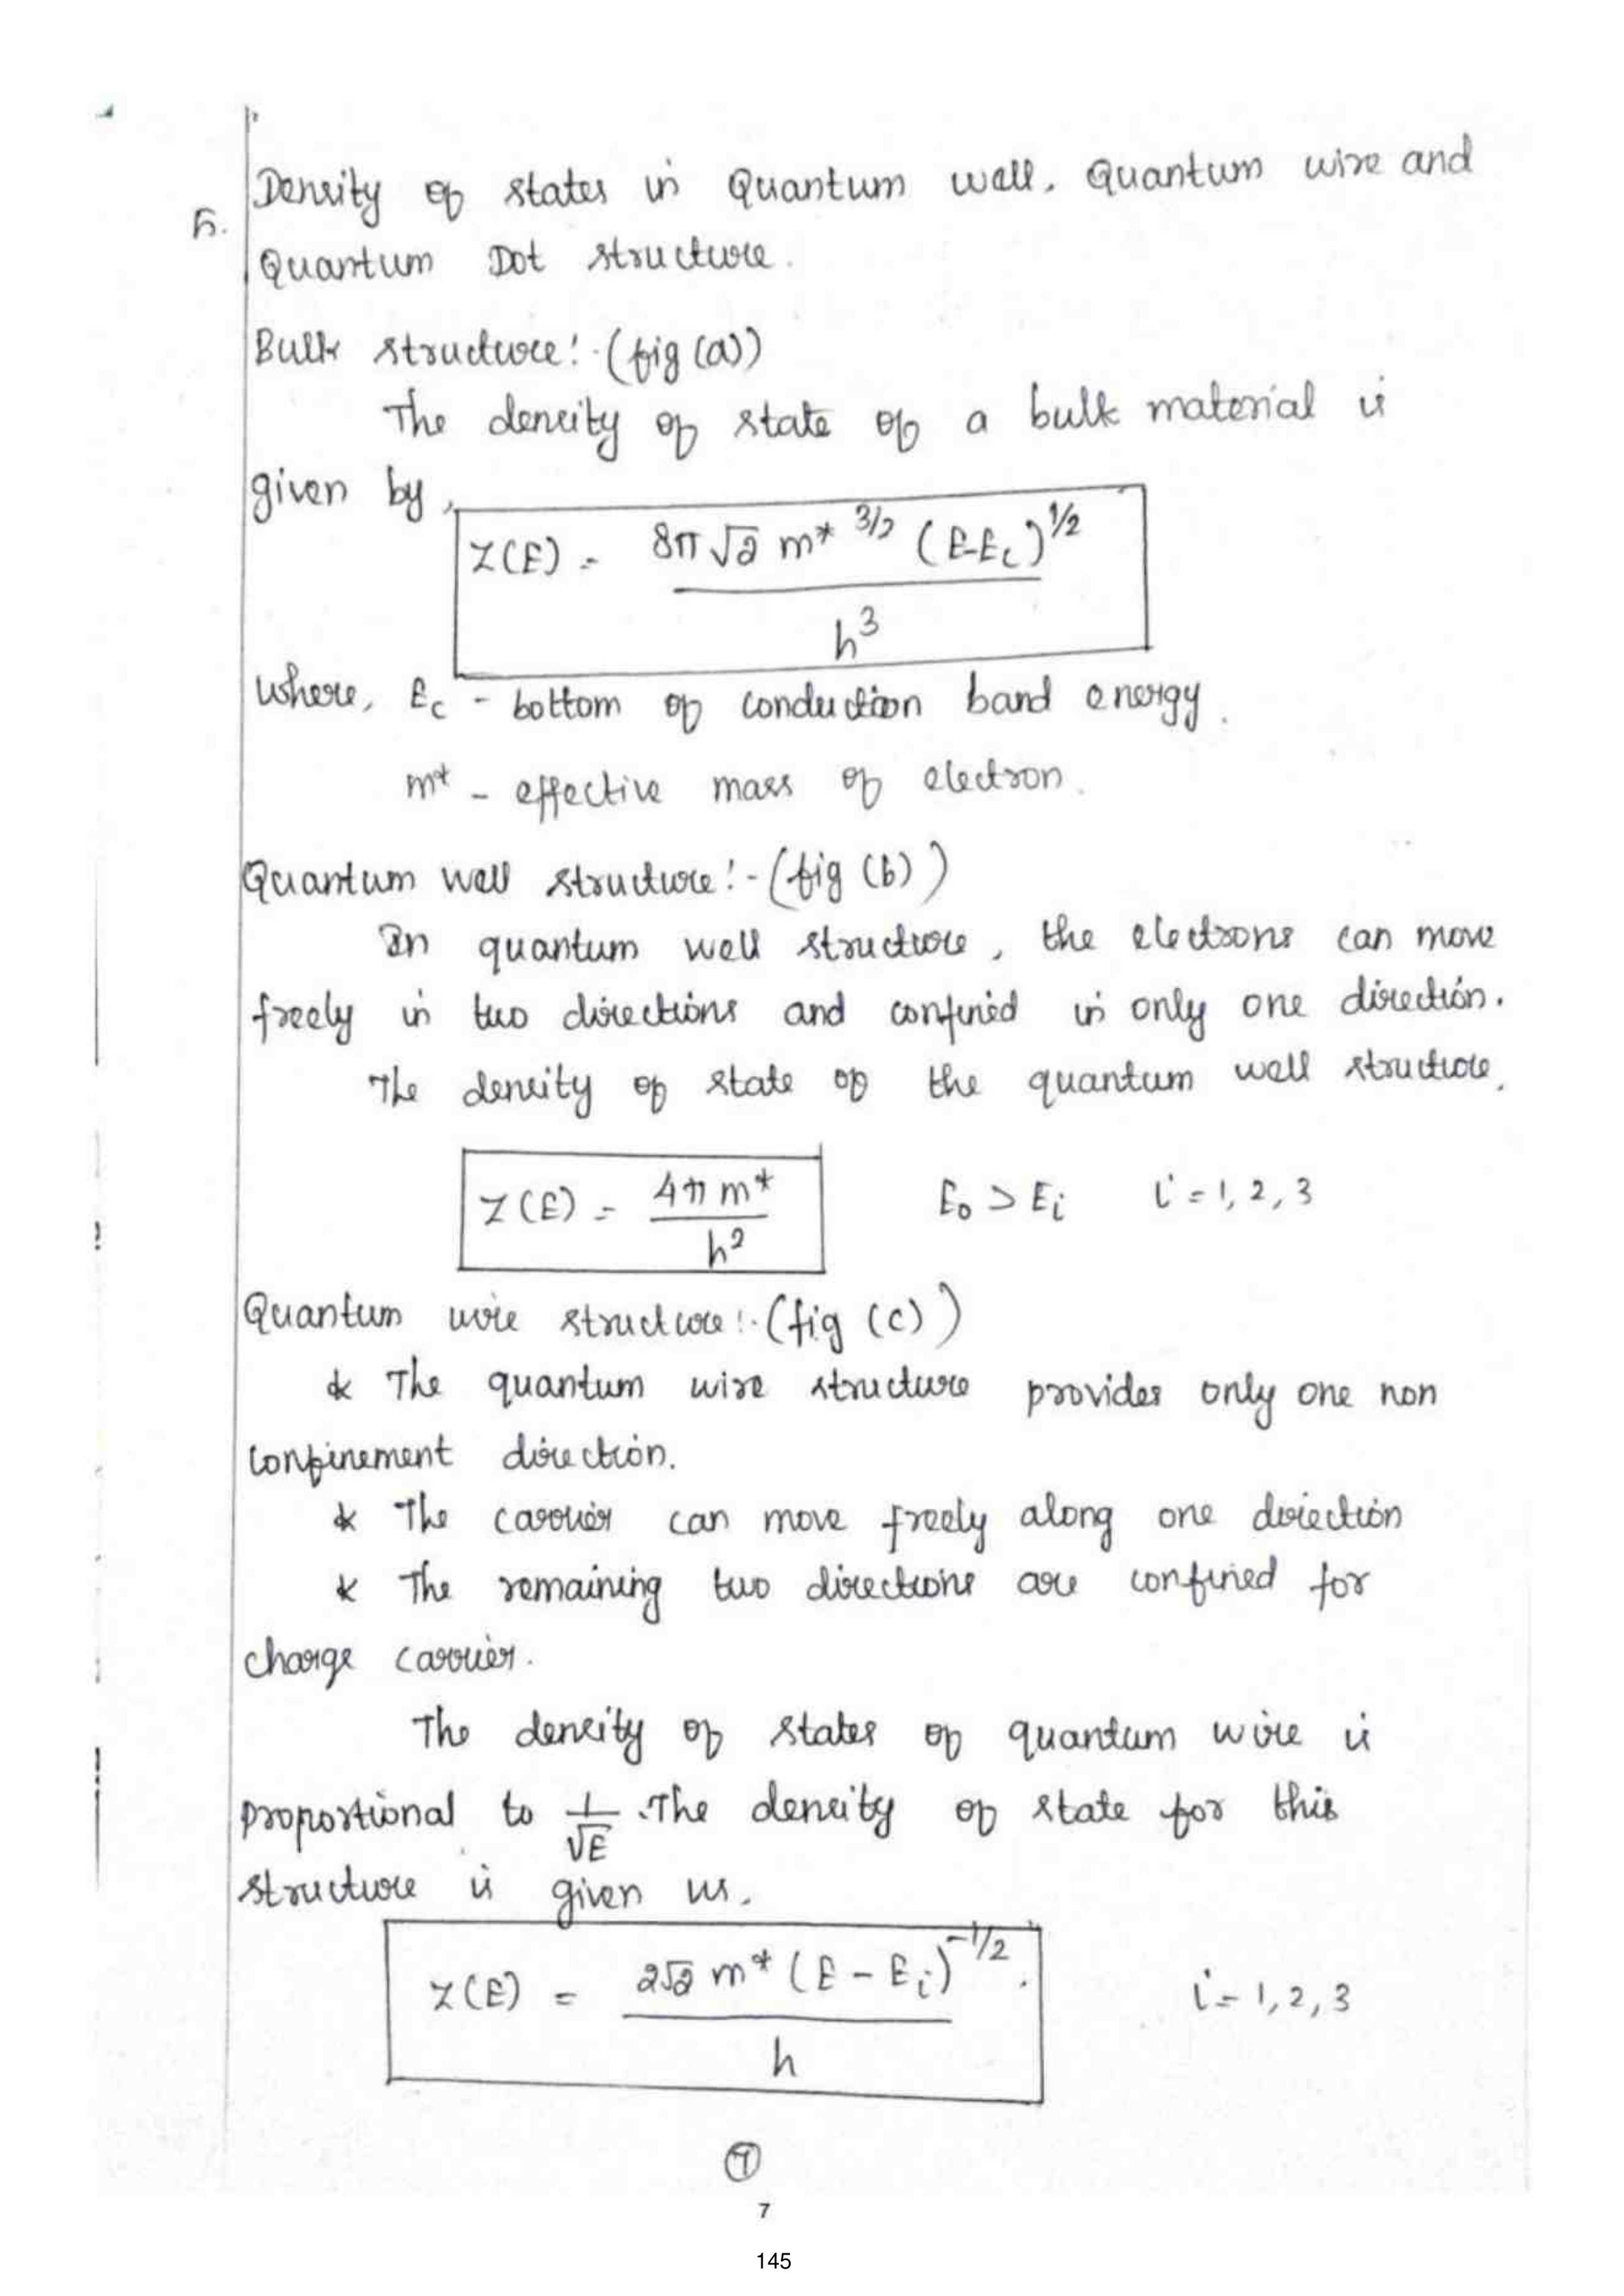 5. Density of states in Quantum well, Quantum wire and
Quantum Dot structure.
Bulk structure:- (fig (a))
The density of state of a bulk material is
given by,
Z(E) = 8π√2 m* 3/2 (E-Ec)^1/2 / h^3
where, Ec - bottom of conduction band energy.
m* - effective mass of electron.
Quantum well structure:- (fig (b))
In quantum well structure, the electrons can move
freely in two directions and confined in only one direction.
The density of state of the quantum well structure.
Z(E) = 4πm* / h^2 E0 > Ei i = 1, 2, 3
Quantum wire structure:- (fig (c))
* The quantum wire structure provides only one non
confinement direction.
* The carrier can move freely along one direction
* The remaining two directions are confined for
charge carrier.
The density of states of quantum wire is
proportional to 1/√E. The density of state for this
structure is given us.
Z(E) = 2√2 m* (E - Ei)^-1/2 / h i = 1, 2, 3
7
7
145